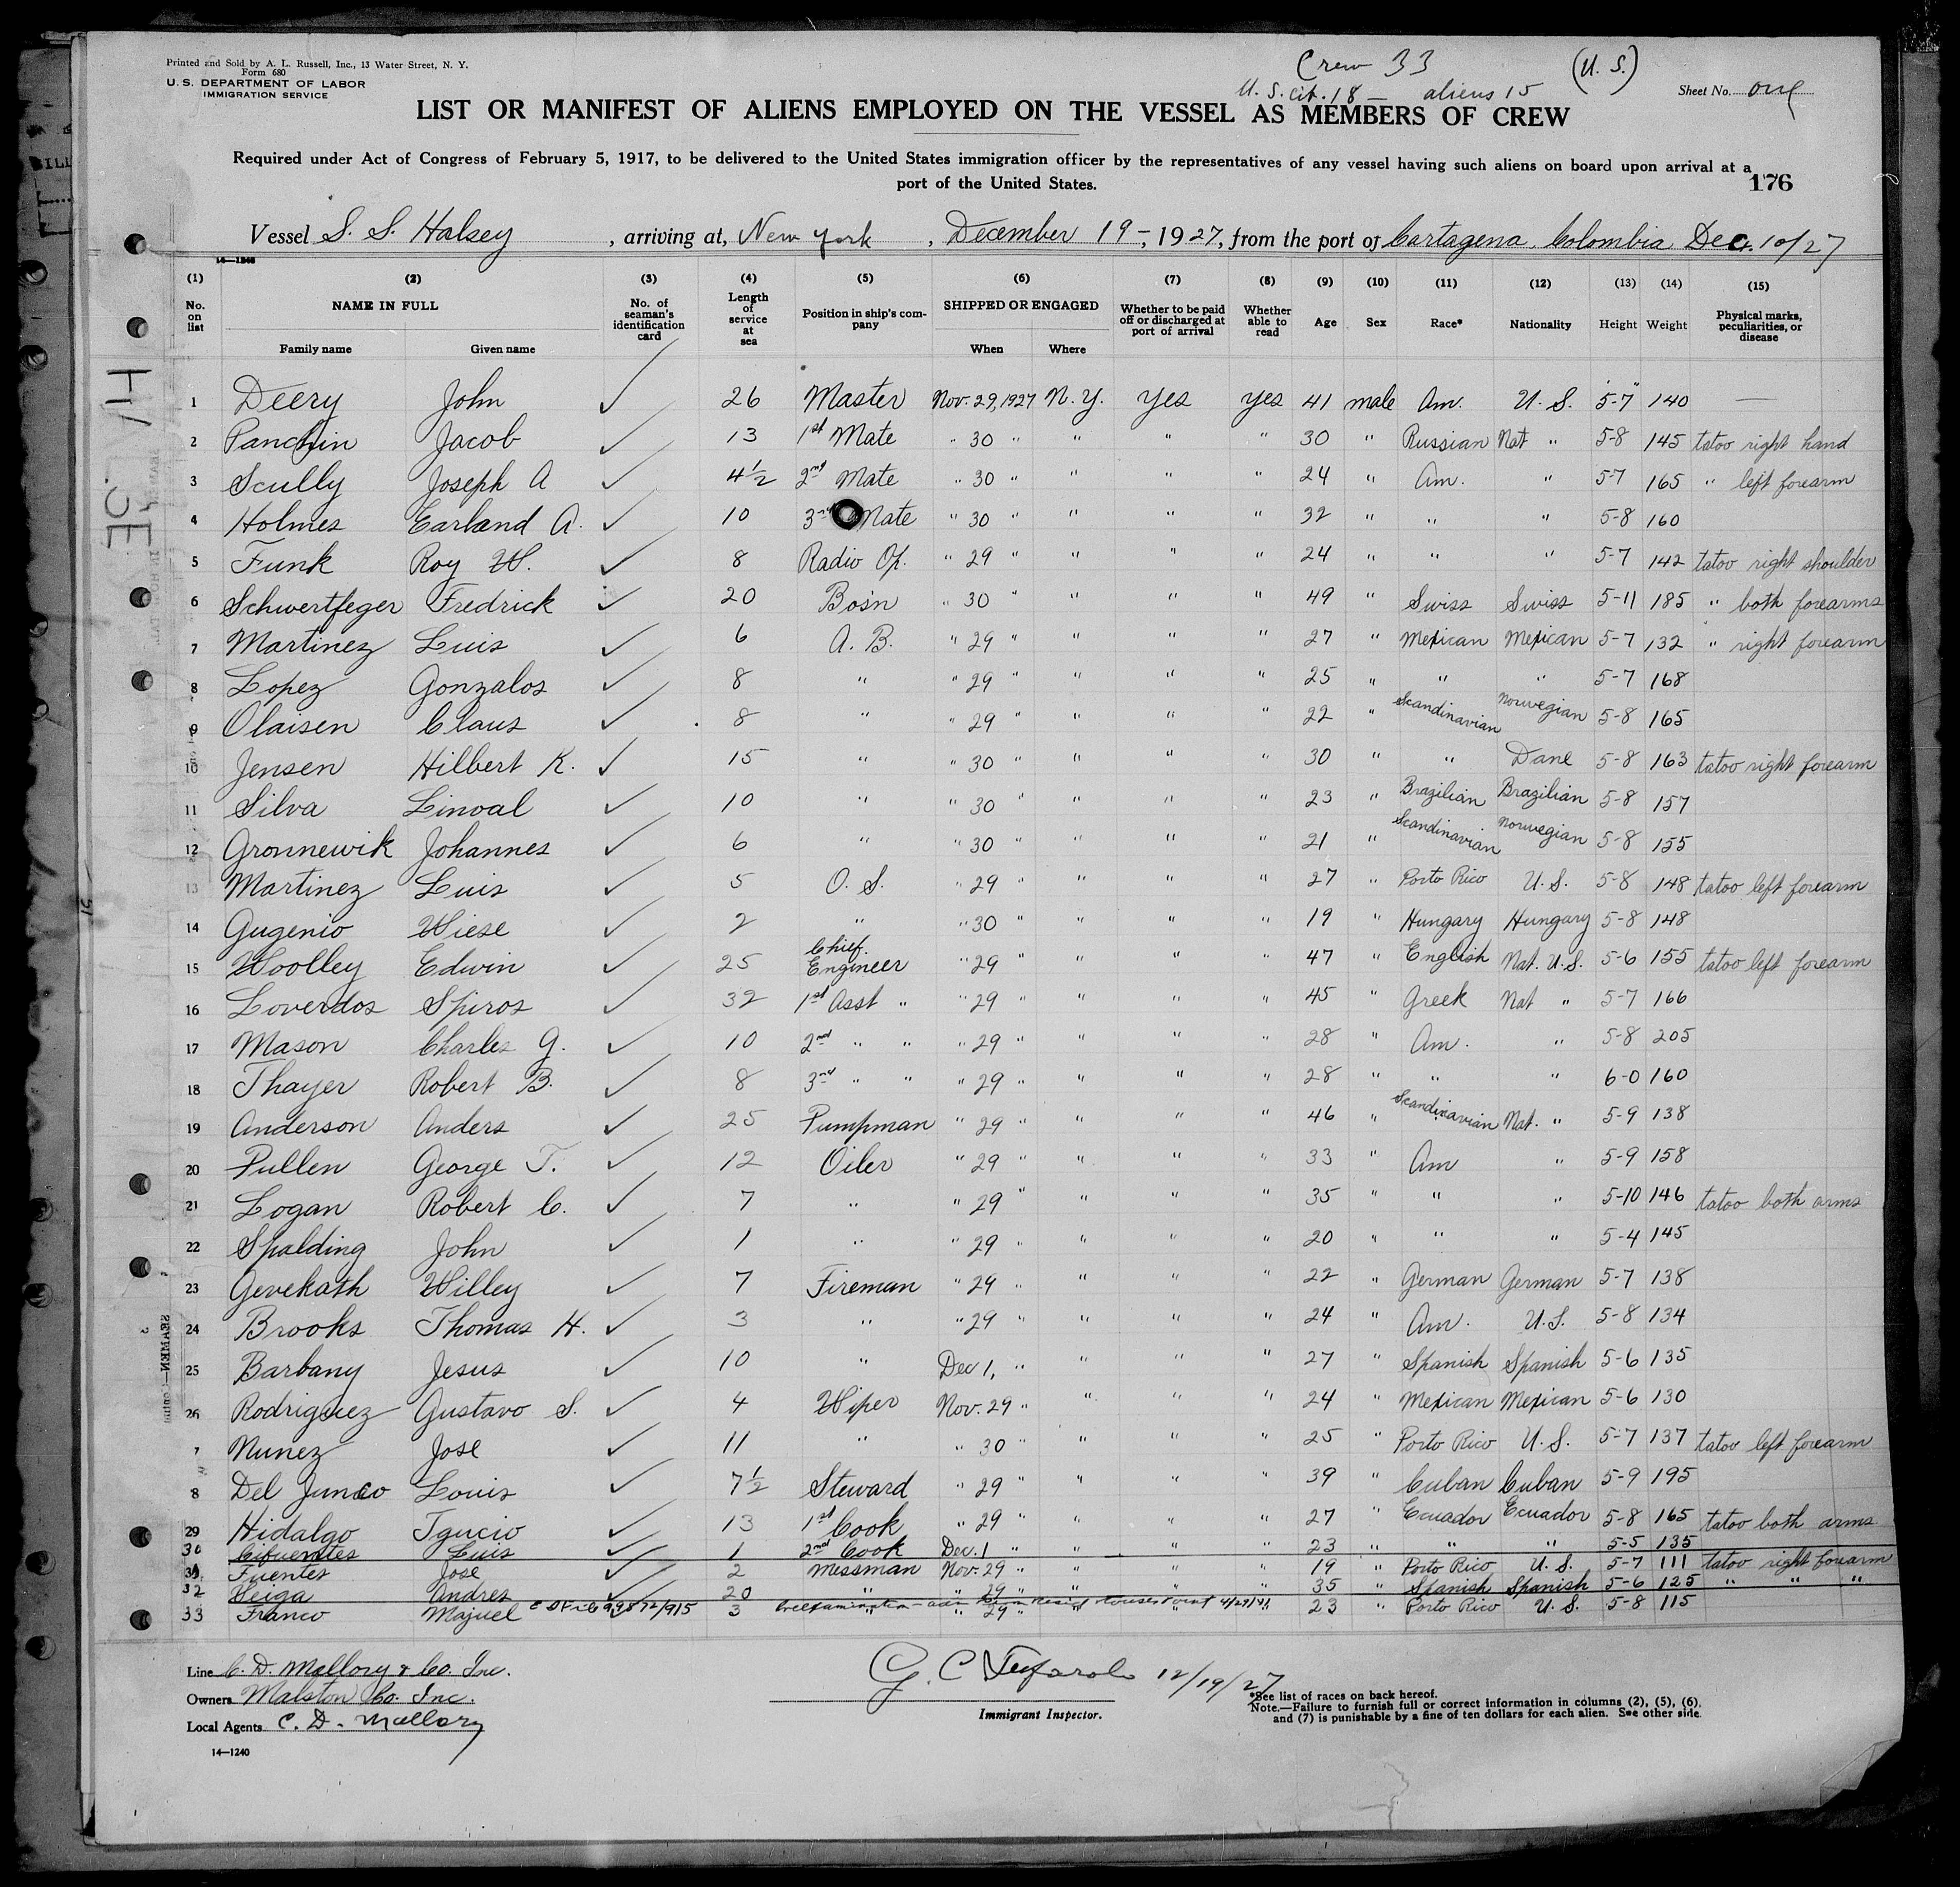 Printed and Sold by A. L. Russell, Inc., 13 Water Street, N. Y.
Form 680
U. S. DEPARTMENT OF LABOR
IMMIGRATION SERVICE
Crew 33 (U. S.)
U. S. cit. 18 — aliens 15
Sheet No. one
LIST OR MANIFEST OF ALIENS EMPLOYED ON THE VESSEL AS MEMBERS OF CREW
Required under Act of Congress of February 5, 1917, to be delivered to the United States immigration officer by the representatives of any vessel having such aliens on board upon arrival at a
port of the United States.
176
Vessel S. S. Halsey, arriving at, New York, December 19-, 1927, from the port of Cartagena, Colombia Dec. 10/27
14—1240
(1) (2) (3) (4) (5) (6) (7) (8) (9) (10) (11) (12) (13) (14) (15)
No. on list NAME IN FULL Family name Given name No. of seaman's identification card Length of service at sea Position in ship's company SHIPPED OR ENGAGED When Where Whether to be paid off or discharged at port of arrival Whether able to read Age Sex Race* Nationality Height Weight Physical marks, peculiarities, or disease
1 Deery John ✓ 26 Master Nov. 29, 1927 N. Y. Yes yes 41 male Am. U. S. 5-7" 140 —
2 Panchin Jacob ✓ 13 1st Mate " 30 " " " " 30 " Russian Nat " 5-8 145 tatoo right hand
3 Scully Joseph A ✓ 4½ 2nd Mate " 30 " " " " 24 " Am. " 5-7 165 " left forearm
4 Holmes Earland A. ✓ 10 3rd Mate " 30 " " " " 32 " " " 5-8 160
5 Funk Roy W. ✓ 8 Radio Op. " 29 " " " " 24 " " " 5-7 142 tatoo right shoulder
6 Schwertfeger Fredrick ✓ 20 Bosn " 30 " " " " 49 " Swiss Swiss 5-11 185 " both forearms
7 Martinez Luis ✓ 6 A. B. " 29 " " " " 27 " Mexican Mexican 5-7 132 " right forearm
8 Lopez Gonzalos ✓ 8 " " 29 " " " " 25 " " " 5-7 168
9 Olaisen Claus ✓ 8 " " 29 " " " " 22 " Scandinavian Norwegian 5-8 165
10 Jensen Hilbert K. ✓ 15 " " 30 " " " " 30 " " Dane 5-8 163 tatoo right forearm
11 Silva Linoal ✓ 10 " " 30 " " " " 23 " Brazilian Brazilian 5-8 157
12 Gronnewik Johannes ✓ 6 " " 30 " " " " 21 " Scandinavian Norwegian 5-8 155
13 Martinez Luis ✓ 5 O. S. " 29 " " " " 27 " Porto Rico U. S. 5-8 148 tatoo left forearm
14 Gugenio Wiese ✓ 2 " " 30 " " " " 19 " Hungary Hungary 5-8 148
15 Woolley Edwin ✓ 25 Chief Engineer " 29 " " " " 47 " English Nat. U.S. 5-6 155 tatoo left forearm
16 Loverdos Spiros ✓ 32 1st Asst " " 29 " " " " 45 " Greek Nat " 5-7 166
17 Mason Charles G. ✓ 10 2nd " " " 29 " " " " 28 " Am. " 5-8 205
18 Thayer Robert B. ✓ 8 3rd " " " 29 " " " " 28 " " " 6-0 160
19 Anderson Anders ✓ 25 Pumpman " 29 " " " " 46 " Scandinavian Nat. " 5-9 138
20 Pullen George T. ✓ 12 Oiler " 29 " " " " 33 " Am " 5-9 158
21 Logan Robert C. ✓ 7 " " 29 " " " " 35 " " " 5-10 146 tatoo both arms
22 Spalding John ✓ 1 " " 29 " " " " 20 " " " 5-4 145
23 Gevekoth Willey ✓ 7 Fireman " 29 " " " " 22 " German German 5-7 138
24 Brooks Thomas H. ✓ 3 " " 29 " " " " 24 " Am. U.S. 5-8 134
25 Barbany Jesus ✓ 10 " Dec 1, " " " " 27 " Spanish Spanish 5-6 135
26 Rodriguez Gustavo S. ✓ 4 Wiper Nov. 29 " " " " 24 " Mexican Mexican 5-6 130
7 Nunez Jose ✓ 11 " " 30 " " " " 25 " Porto Rico U. S. 5-7 137 tatoo left forearm
8 Del Junco Louis ✓ 7½ Steward " 29 " " " " 39 " Cuban Cuban 5-9 195
29 Hidalgo Igucio ✓ 13 1st Cook " 29 " " " " 27 " Ecuador Ecuador 5-8 165 tatoo both arms
30 Cifuentes Luis ✓ 1 2nd Cook Dec. 1 " " " " 23 " " " 5-5 135
31 Fuentes Jose ✓ 2 Messman Nov. 29 " " " " 19 " Porto Rico U. S. 5-7 111 tatoo right forearm
32 Veiga Andres ✓ 20 " " 29 " " " " 35 " Spanish Spanish 5-6 125 " " "
33 Franco Majuel 3 " " 29 " " " " 23 " Porto Rico U. S. 5-8 115
Line C. D. Mallory & Co. Inc.
Owners Malston Co. Inc.
Local Agents C. D. Mallory
14—1240
G. C. 12/19/27
Immigrant Inspector.
*See list of races on back hereof.
Note.—Failure to furnish full or correct information in columns (2), (5), (6),
and (7) is punishable by a fine of ten dollars for each alien. See other side.